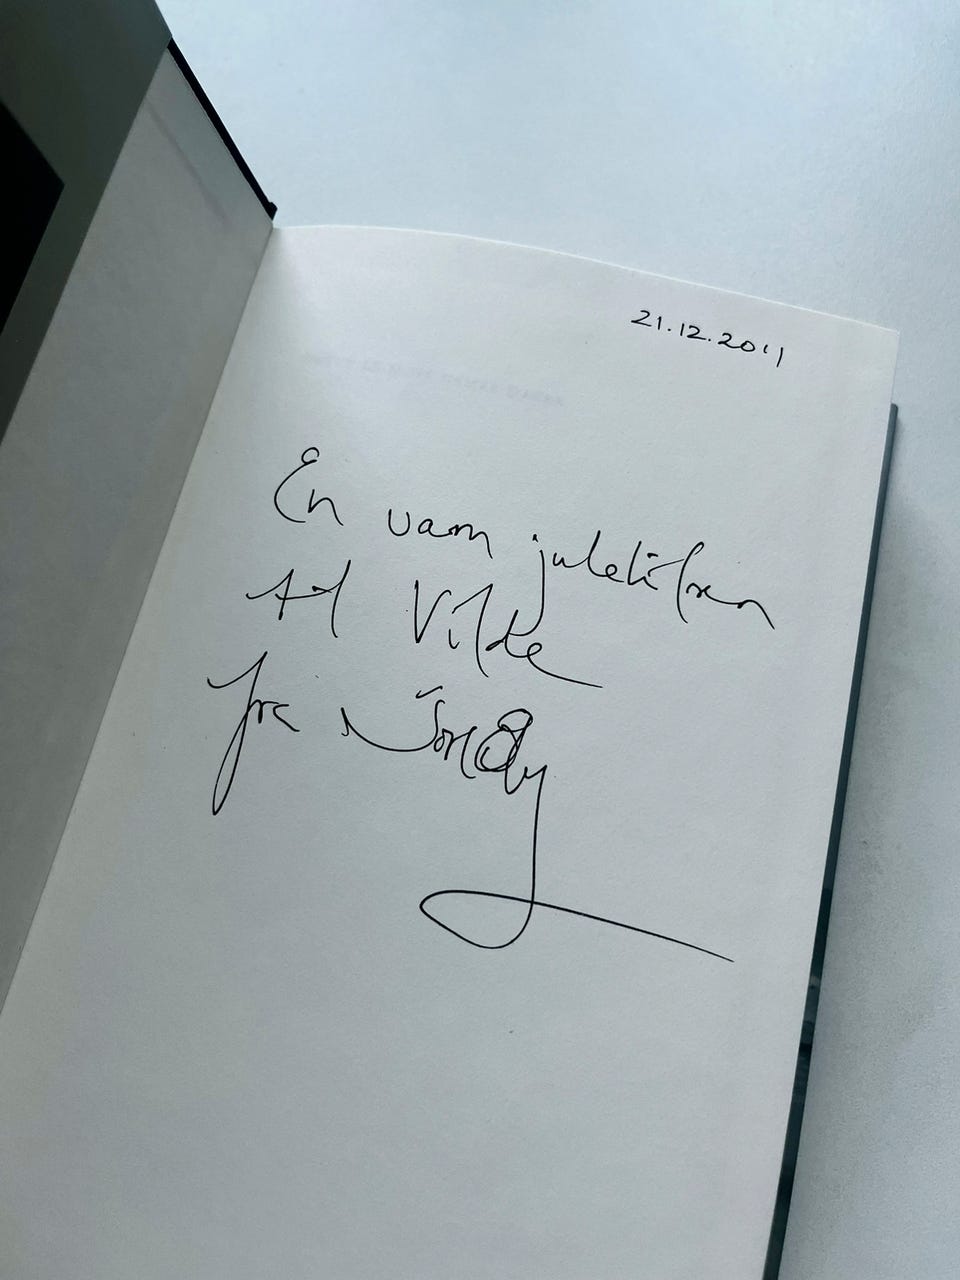 21.12.2011
En varm julehilsen
til Vilde
fra